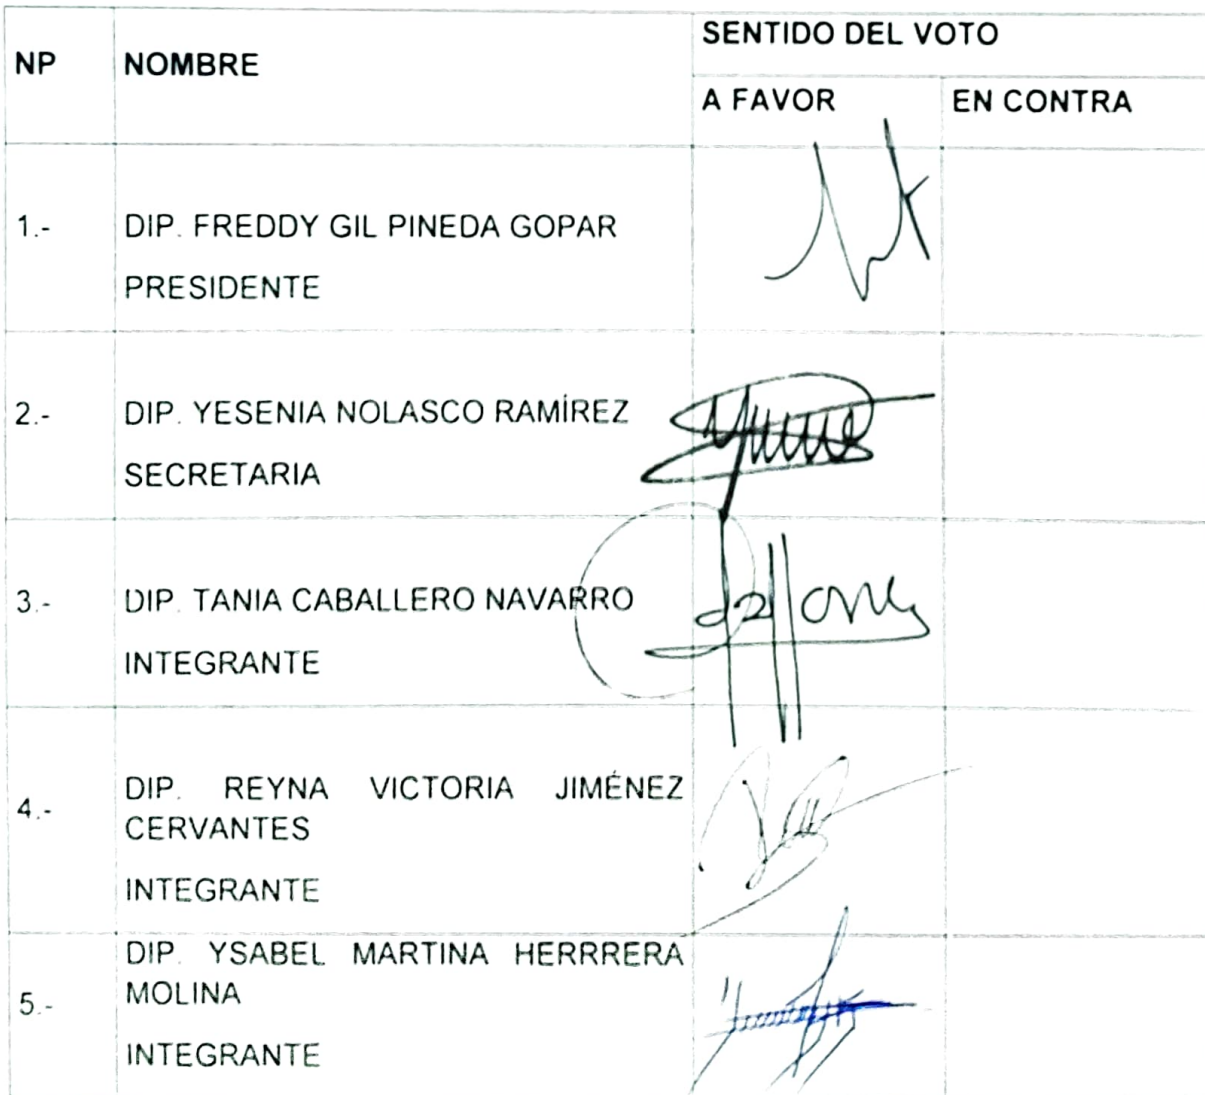 SENTIDO DEL VOTO
NP NOMBRE
A FAVOR EN CONTRA
1.- DIP. FREDDY GIL PINEDA GOPAR
PRESIDENTE
2.- DIP. YESENIA NOLASCO RAMÍREZ
SECRETARIA
3.- DIP. TANIA CABALLERO NAVARRO
INTEGRANTE
DIP. REYNA VICTORIA JIMÉNEZ
4.- CERVANTES
INTEGRANTE
DIP. YSABEL MARTINA HERRRERA
5.- MOLINA
INTEGRANTE